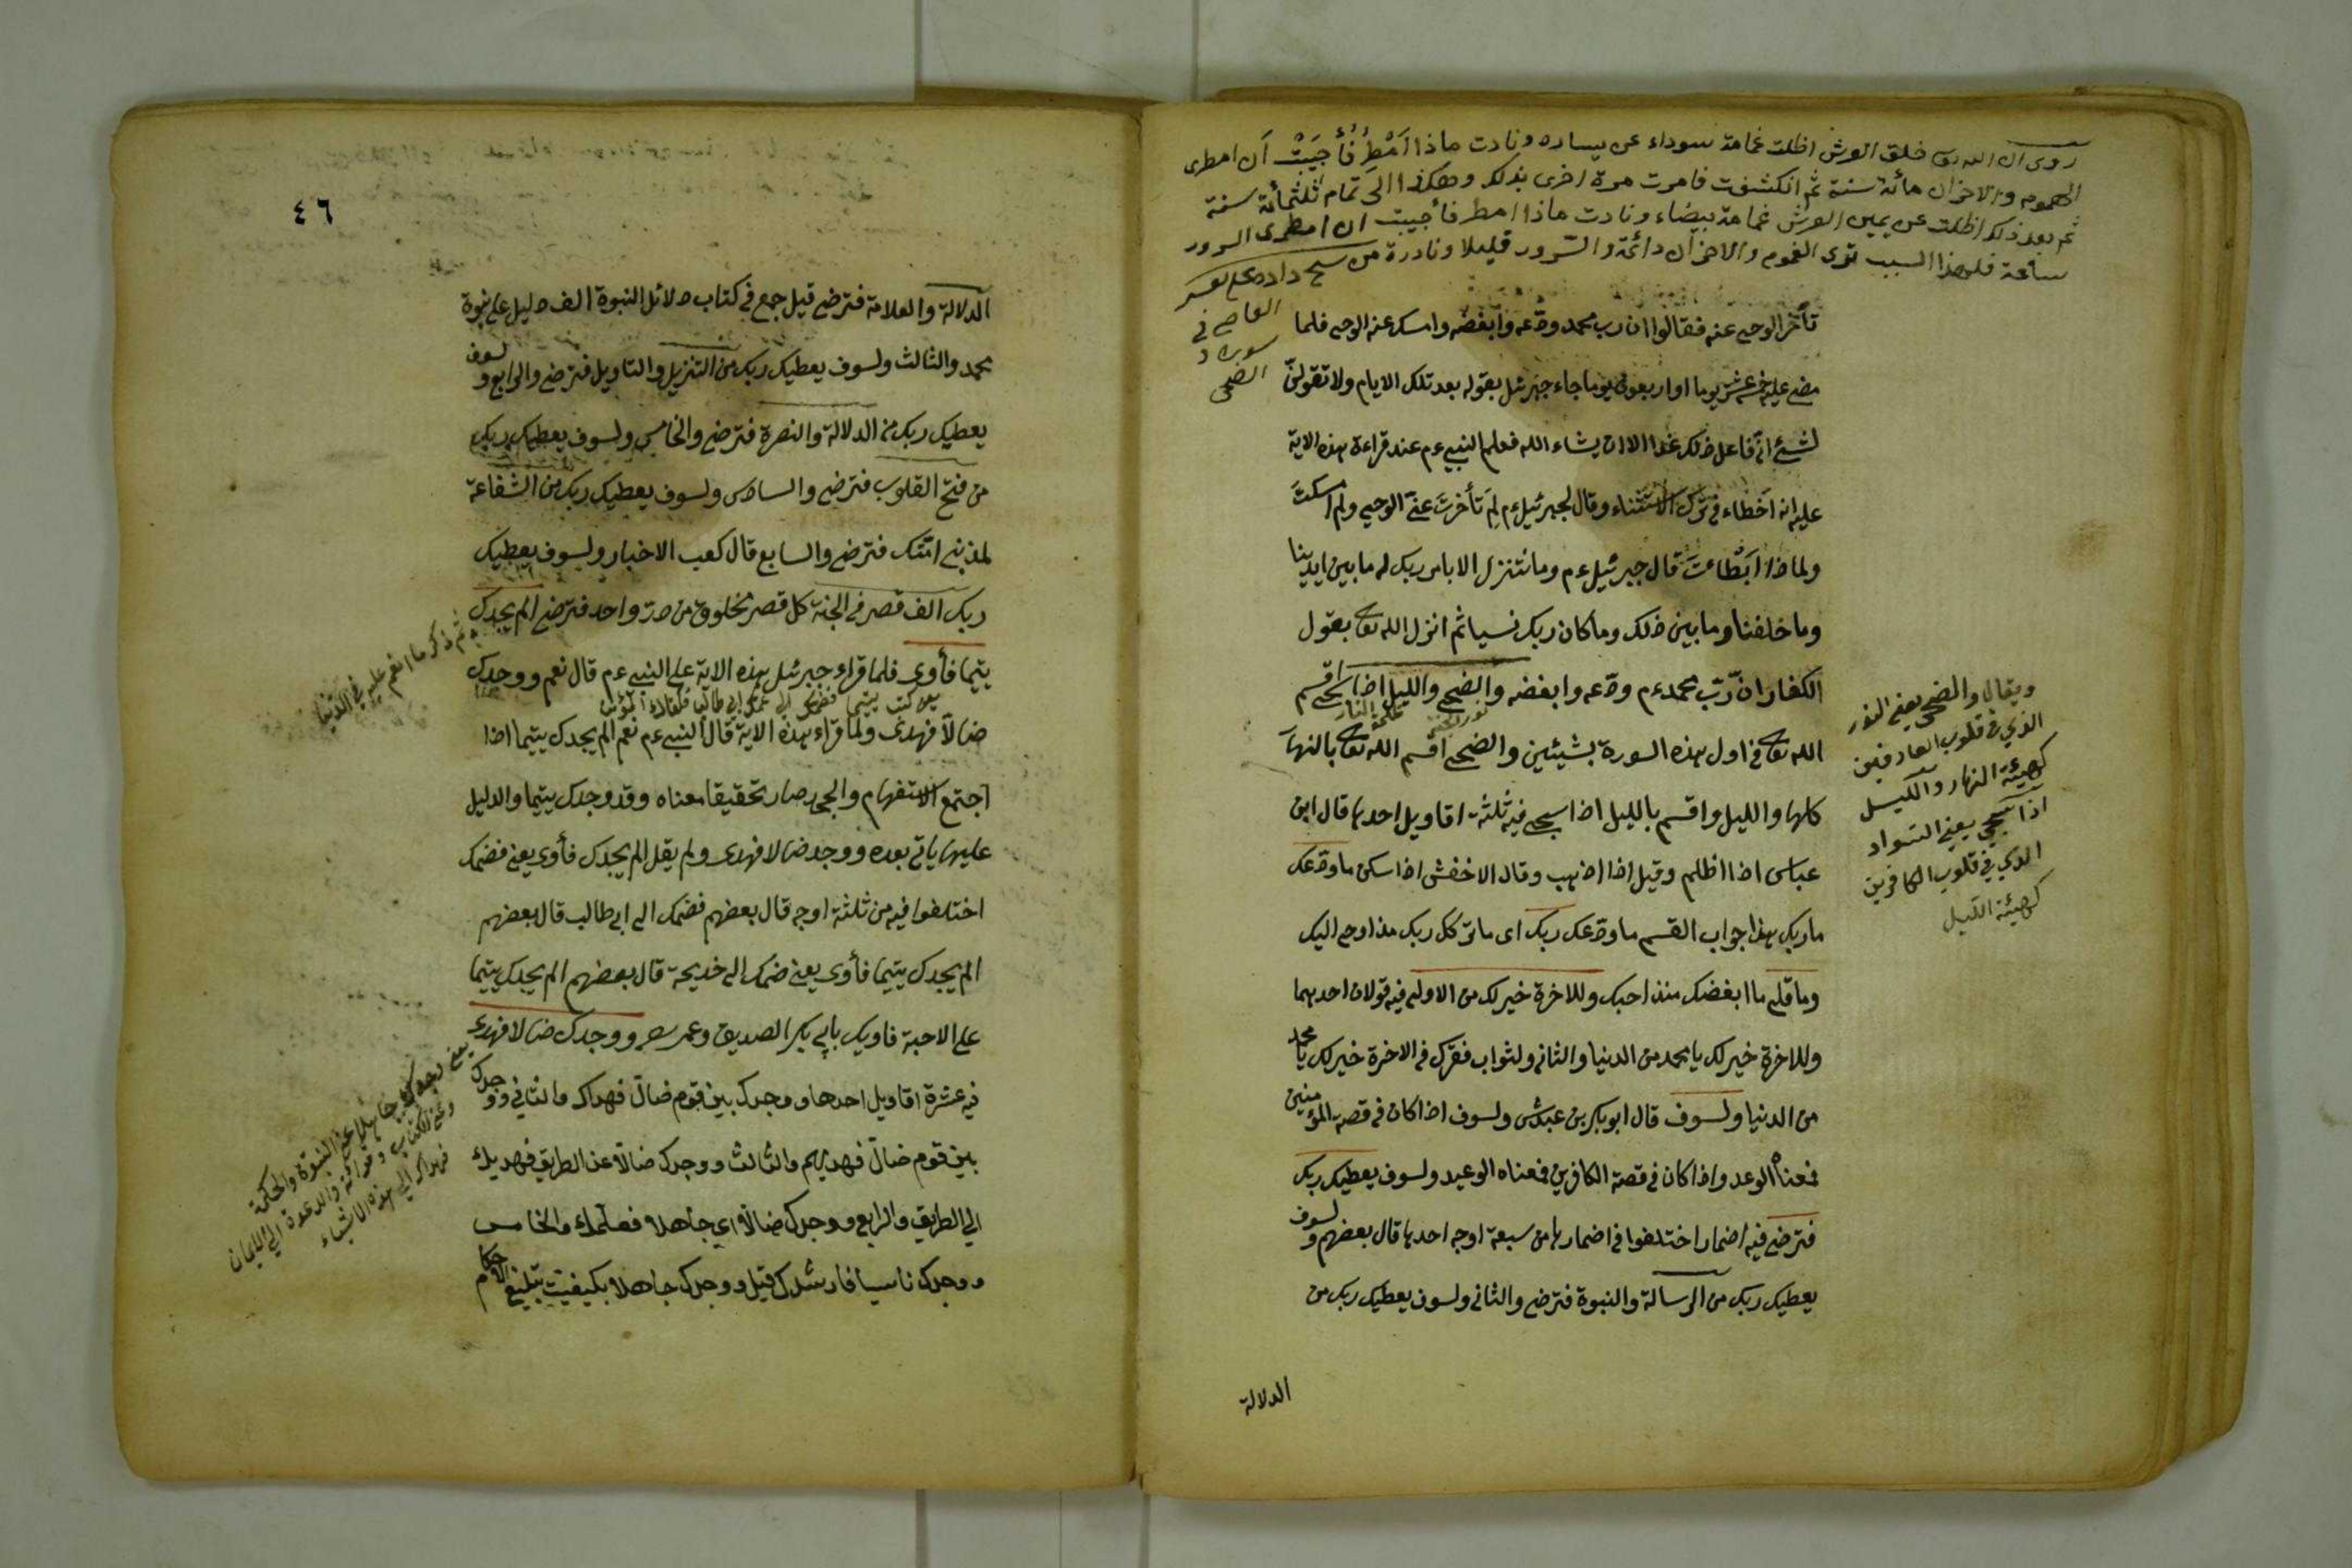 روى ان الله تعالى خلق العرش اظلت غمامة سوداء عن يساره ونادت ماذا أمطر فأجيبت أن امطرى
الهموم والاحزان مائة سنة ثم انكشفت فامرت مرة اخرى بذلك وهكذا الى تمام ثلثمائة سنة
ثم بعد ذلك اظلت عن يمين العرش غمامة بيضاء ونادت ماذا امطر فأجيبت ان امطرى السرور
ساعة فلهذا السبب ترى الغموم والاحزان دائمة والسرور قليلا ونادرة من
سورة
الضحى
تأخر الوحى عنه فقالوا ان رب محمد ودعه وابغضه وامسك عنه الوحى فلما
مضى عليه خمسة عشر يوما او اربعون يوما جاء جبرئيل بقوله بعد تلك الايام ولا تقولن
لشئ انى فاعل ذلك غدا الا ان يشاء الله فعلم النبى عم عند قراءة هذه الاية
عليه انه اخطاء فى ترك الاستثناء وقال لجبرئيل عم لم تأخرت عنى الوحى ولم امسكت
ولماذا ابطاءت قال جبرئيل عم وما نتنزل الا بامر ربك له ما بين ايدينا
وما خلفنا وما بين ذلك وما كان ربك نسيا ثم انزل الله تعالى بقول
الكفار ان رب محمد عم ودعه وابغضه والضحى والليل اذا سجى اقسم
الله تعالى فى اول هذه السورة بشيئين والضحى اقسم الله تعالى بالنهار
كلها والليل واقسم بالليل اذا سجى فيه ثلثة اقاويل احدها قال ابن
عباس اذا اظلم وقيل اذا اذهب وقال الاخفش اذا سكن ما ودعك
ما ربك هذا جواب القسم ما ودعك ربك اى ما تركك ربك منذ اوحى اليك
وما قلى ما ابغضك منذ احبك وللاخرة خير لك من الاولى فيه قولان احدهما
وللاخرة خير لك يا محمد من الدنيا والثانى ولثواب فقرك فى الاخرة خير لك يا محمد
من الدنيا ولسوف قال ابو بكر بن عبدش ولسوف اذا كان فى قصة المؤمنين
فمعناه الوعد واذا كان فى قصة الكافرين فمعناه الوعيد ولسوف يعطيك ربك
فترضى فيه اضمار اختلفوا فى اضمارها من سبعة اوجه احدها قال بعضهم ولسوف
يعطيك ربك من الرسالة والنبوة فترضى والثانى ولسوف يعطيك ربك من
الدلالة
ويقال والضحى يعنى النور
الذي فى قلوب العارفين
كهيئة النهار والليل
اذا سجى يعنى السواد
الذي فى قلوب الكافرين
كهيئة الليل
٤٦
الدلالة والعلامة فترضى قيل جمع فى كتاب دلائل النبوة الف دليل على نبوة
محمد والثالث ولسوف يعطيك ربك من التنزيل والتاويل فترضى والرابع ولسوف
يعطيك ربك من الدلالة والنصرة فترضى والخامس ولسوف يعطيك ربك
من فتح القلوب فترضى والسادس ولسوف يعطيك ربك من الشفاعة
لمذنبى امتك فترضى والسابع قال كعب الاخبار ولسوف يعطيك
ربك الف قصر فى الجنة كل قصر مخلوق من در واحد فترضى الم يجدك
ثم ذكر ما انعم عليه فى الدنيا
يتيما فأوى فلما قراء جبرئيل هذه الاية على النبى عم قال نعم ووجدك
ضالا فهدى ولما قراء هذه الاية قال النبى عم نعم الم يجدك يتيما اذا
اجتمع الاستفهام والجحد صار تحقيقا معناه وقد وجدك يتيما والدليل
عليها ياتى بعده ووجد ضالا فهدى ولم يقل الم يجدك فأوى يعنى فضمك
اختلفوا فيه من ثلثة اوجه قال بعضهم فضمك الى ابى طالب قال بعضهم
الم يجدك يتيما فأوى يعنى ضمك الى خديجة قال بعضهم الم يجدك يتيما
على الاحبة فاويك بابى بكر الصديق وعمر ووجدك ضالا فهدى
فيه عشرة اقاويل احدها ووجدك بين قوم ضال فهداك والثاني ووجدك
بين قوم ضال فهديهم والثالث ووجدك ضالا عن الطريق فهديك
الى الطريق والرابع ووجدك ضالا اى جاهلا فعلمك والخامس
ووجدك ناسيا فارشدك قيل ووجدك جاهلا بكيفيت تبليغ الاحكام
عن النبوة والحكمة
وعن الكتاب وقراءته والدعوة الى الايمان
فهداك الى هذه الاشياء